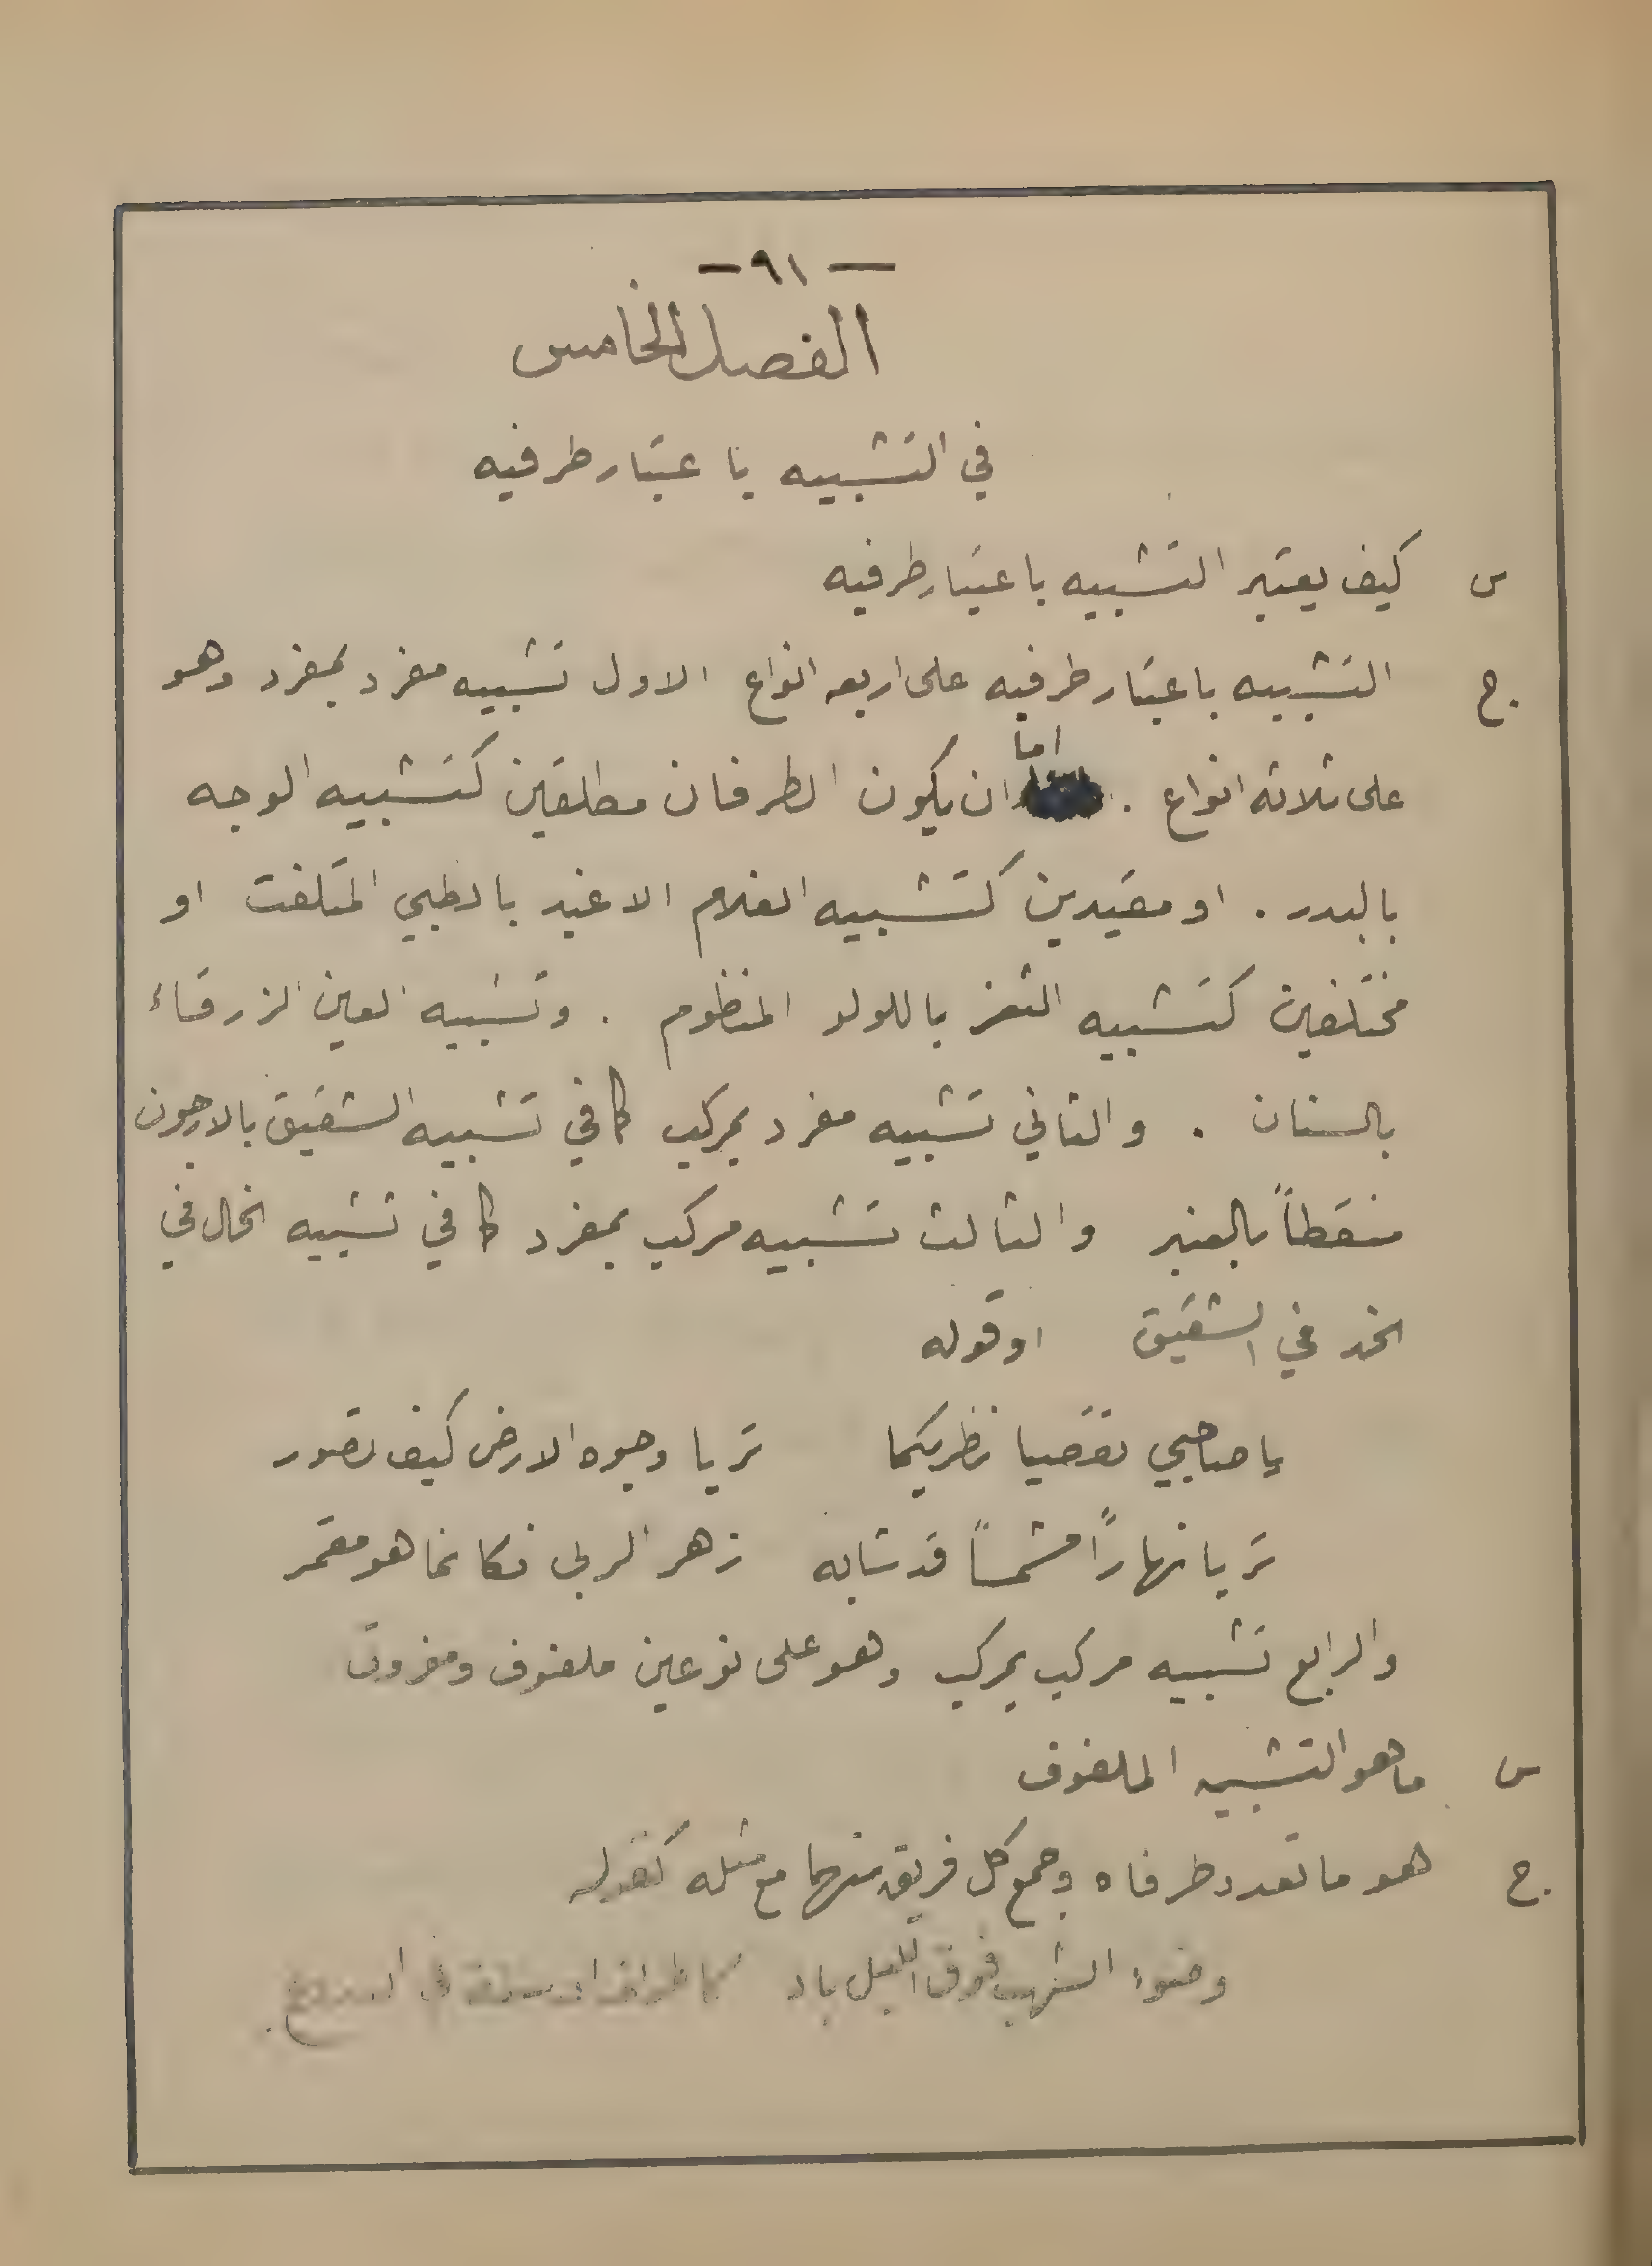 — ٩١ —
الفصل الخامس
في التشبيه باعتبار طرفيه
س كيف يعتبر التشبيه باعتبار طرفيه
ج. التشبيه باعتبار طرفيه على اربعه انواع الاول تشبيه مفرد بمفرد وهو
على ثلاثه انواع . اما ان يكون الطرفان مطلقين كتشبيه الوجه
بالبدر . او مقيدين كتشبيه الغلام الاغيد بالظبي المتلفت او
مختلفين كتشبيه الثغر باللولو المنظوم . وتشبيه العين الزرقاء
بالسنان . والثاني تشبيه مفرد بمركب كما في تشبيه الشقيق بالارجون
منقطاً بالعنبر والثالث تشبيه مركب بمفرد كما في تشبيه الخال في
الخد في الشقيق او قوله
يا صاحبي تقصيا نظريكما تريا وجوه الارض كيف تصور
تريا نهاراً مشمساً قد شابه زهر الربى فكانما هو مقمر
والرابع تشبيه مركب بمركب وهو على نوعين ملفوف ومفروق
س ما هو التشبيه الملفوف
ج. هو ما تعدد طرفاه وجمع كل فريق منهما مع مثله كقوله
وضوء الشهب فوق الليل باد كاطراف الاسنة في الدروع